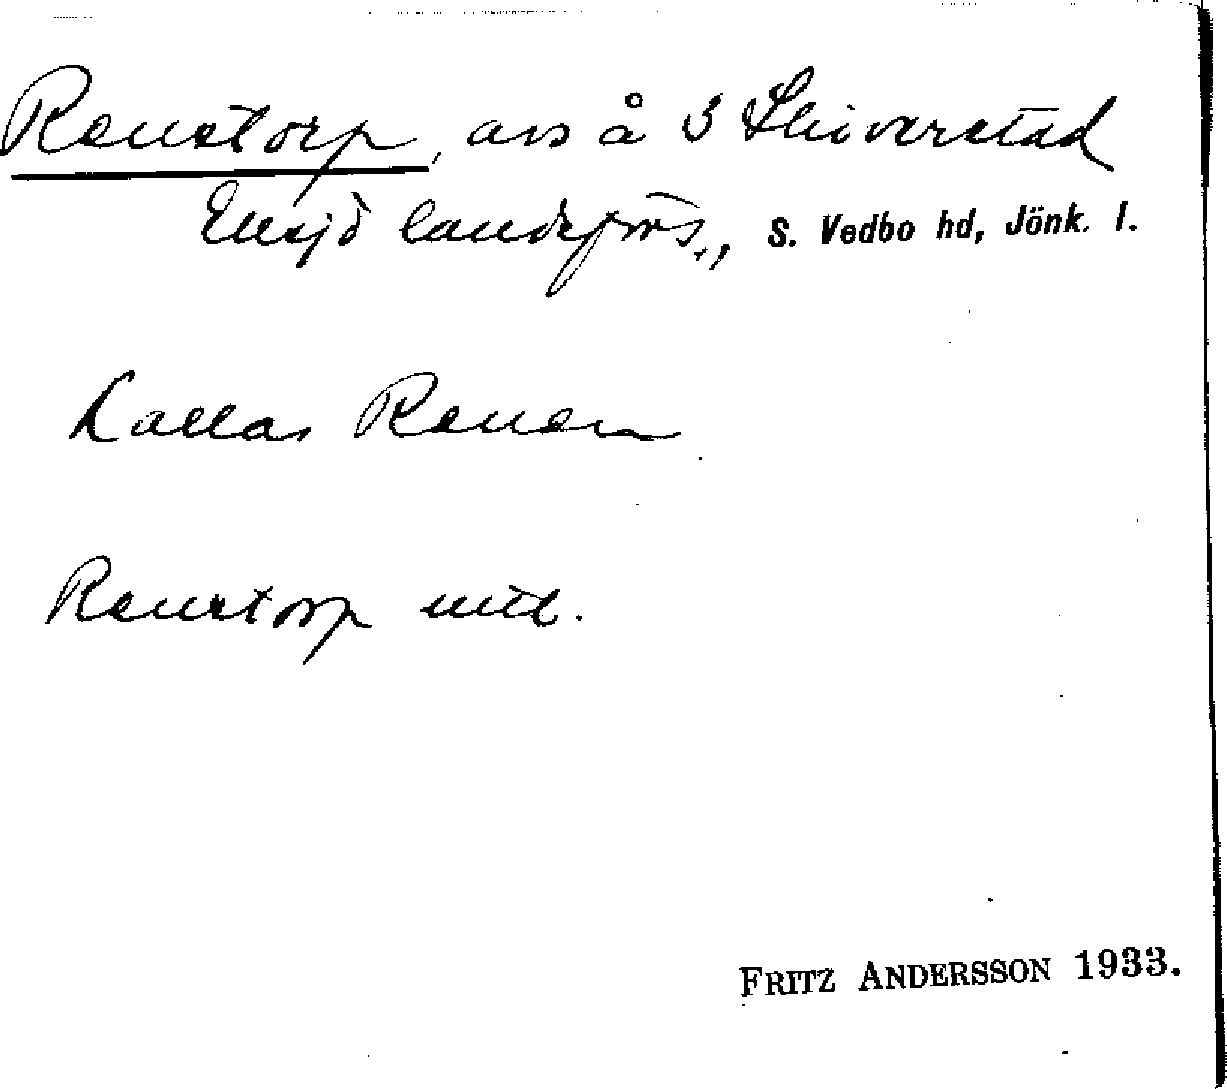 Renstorp, avs å 3 Skiverstad
Eksjö landsförs., S. Vedbo hd, Jönk. l.
Kallas Renen
Renstorp uttl.
FRITZ ANDERSSON 1933.